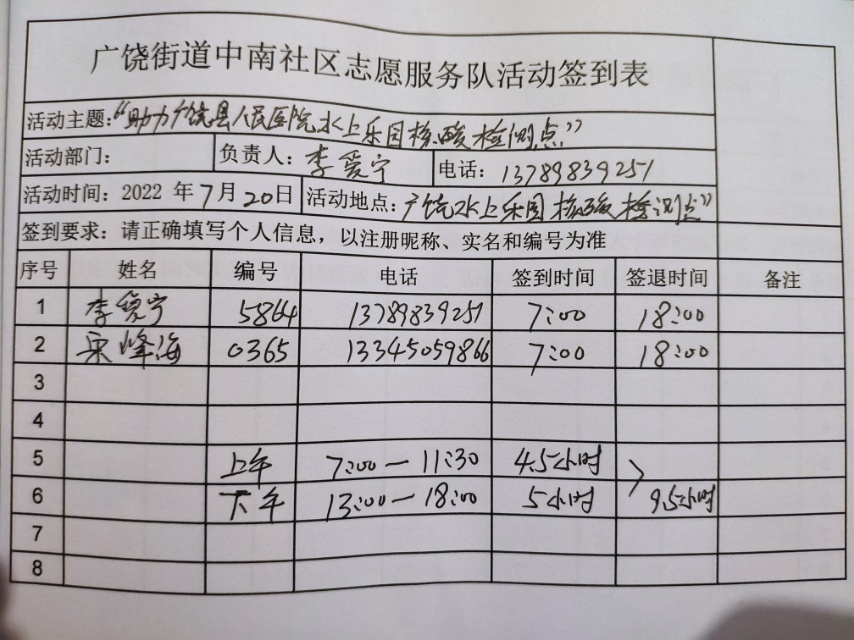 广饶街道中南社区志愿服务队活动签到表
活动主题:“助力广饶县人民医院水上乐园核酸检测点”
活动部门: 负责人: 李爱宁 电话: 13789839251
活动时间: 2022 年 7 月 20 日 活动地点: 广饶水上乐园核酸检测点”
签到要求: 请正确填写个人信息，以注册昵称、实名和编号为准
序号 姓名 编号 电话 签到时间 签退时间 备注
1 李爱宁 5864 13789839251 7:00 18:00
2 宋峰海 0365 13345059866 7:00 18:00
3
4
5 上午 7:00—11:30 4.5小时
6 下午 13:00—18:00 5小时 9.5小时
7
8